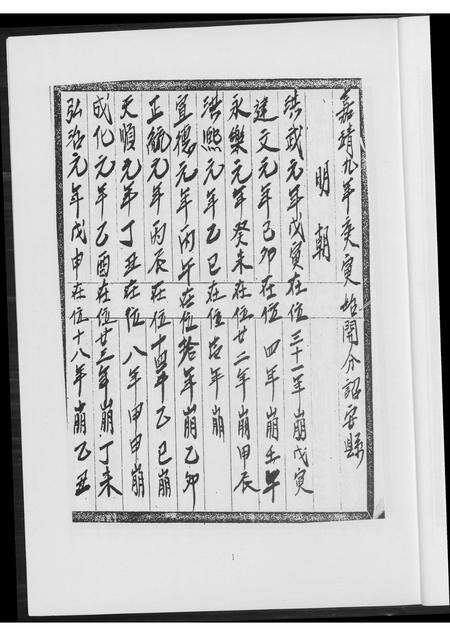 嘉靖九年庚寅始開分詔安縣
明朝
洪武元年戊寅在位三十一年崩戊寅
建文元年己卯在位四年崩壬午
永樂元年癸未在位廿二年崩甲辰
洪熙元年乙巳在位壱年崩
宣德元年丙午在位拾年崩乙卯
正統元年丙辰在位十四年乙巳崩
天順元年丁丑在位八年甲申崩
成化元年乙酉在位廿三年崩丁未
弘治元年戊申在位十八年崩乙丑
1